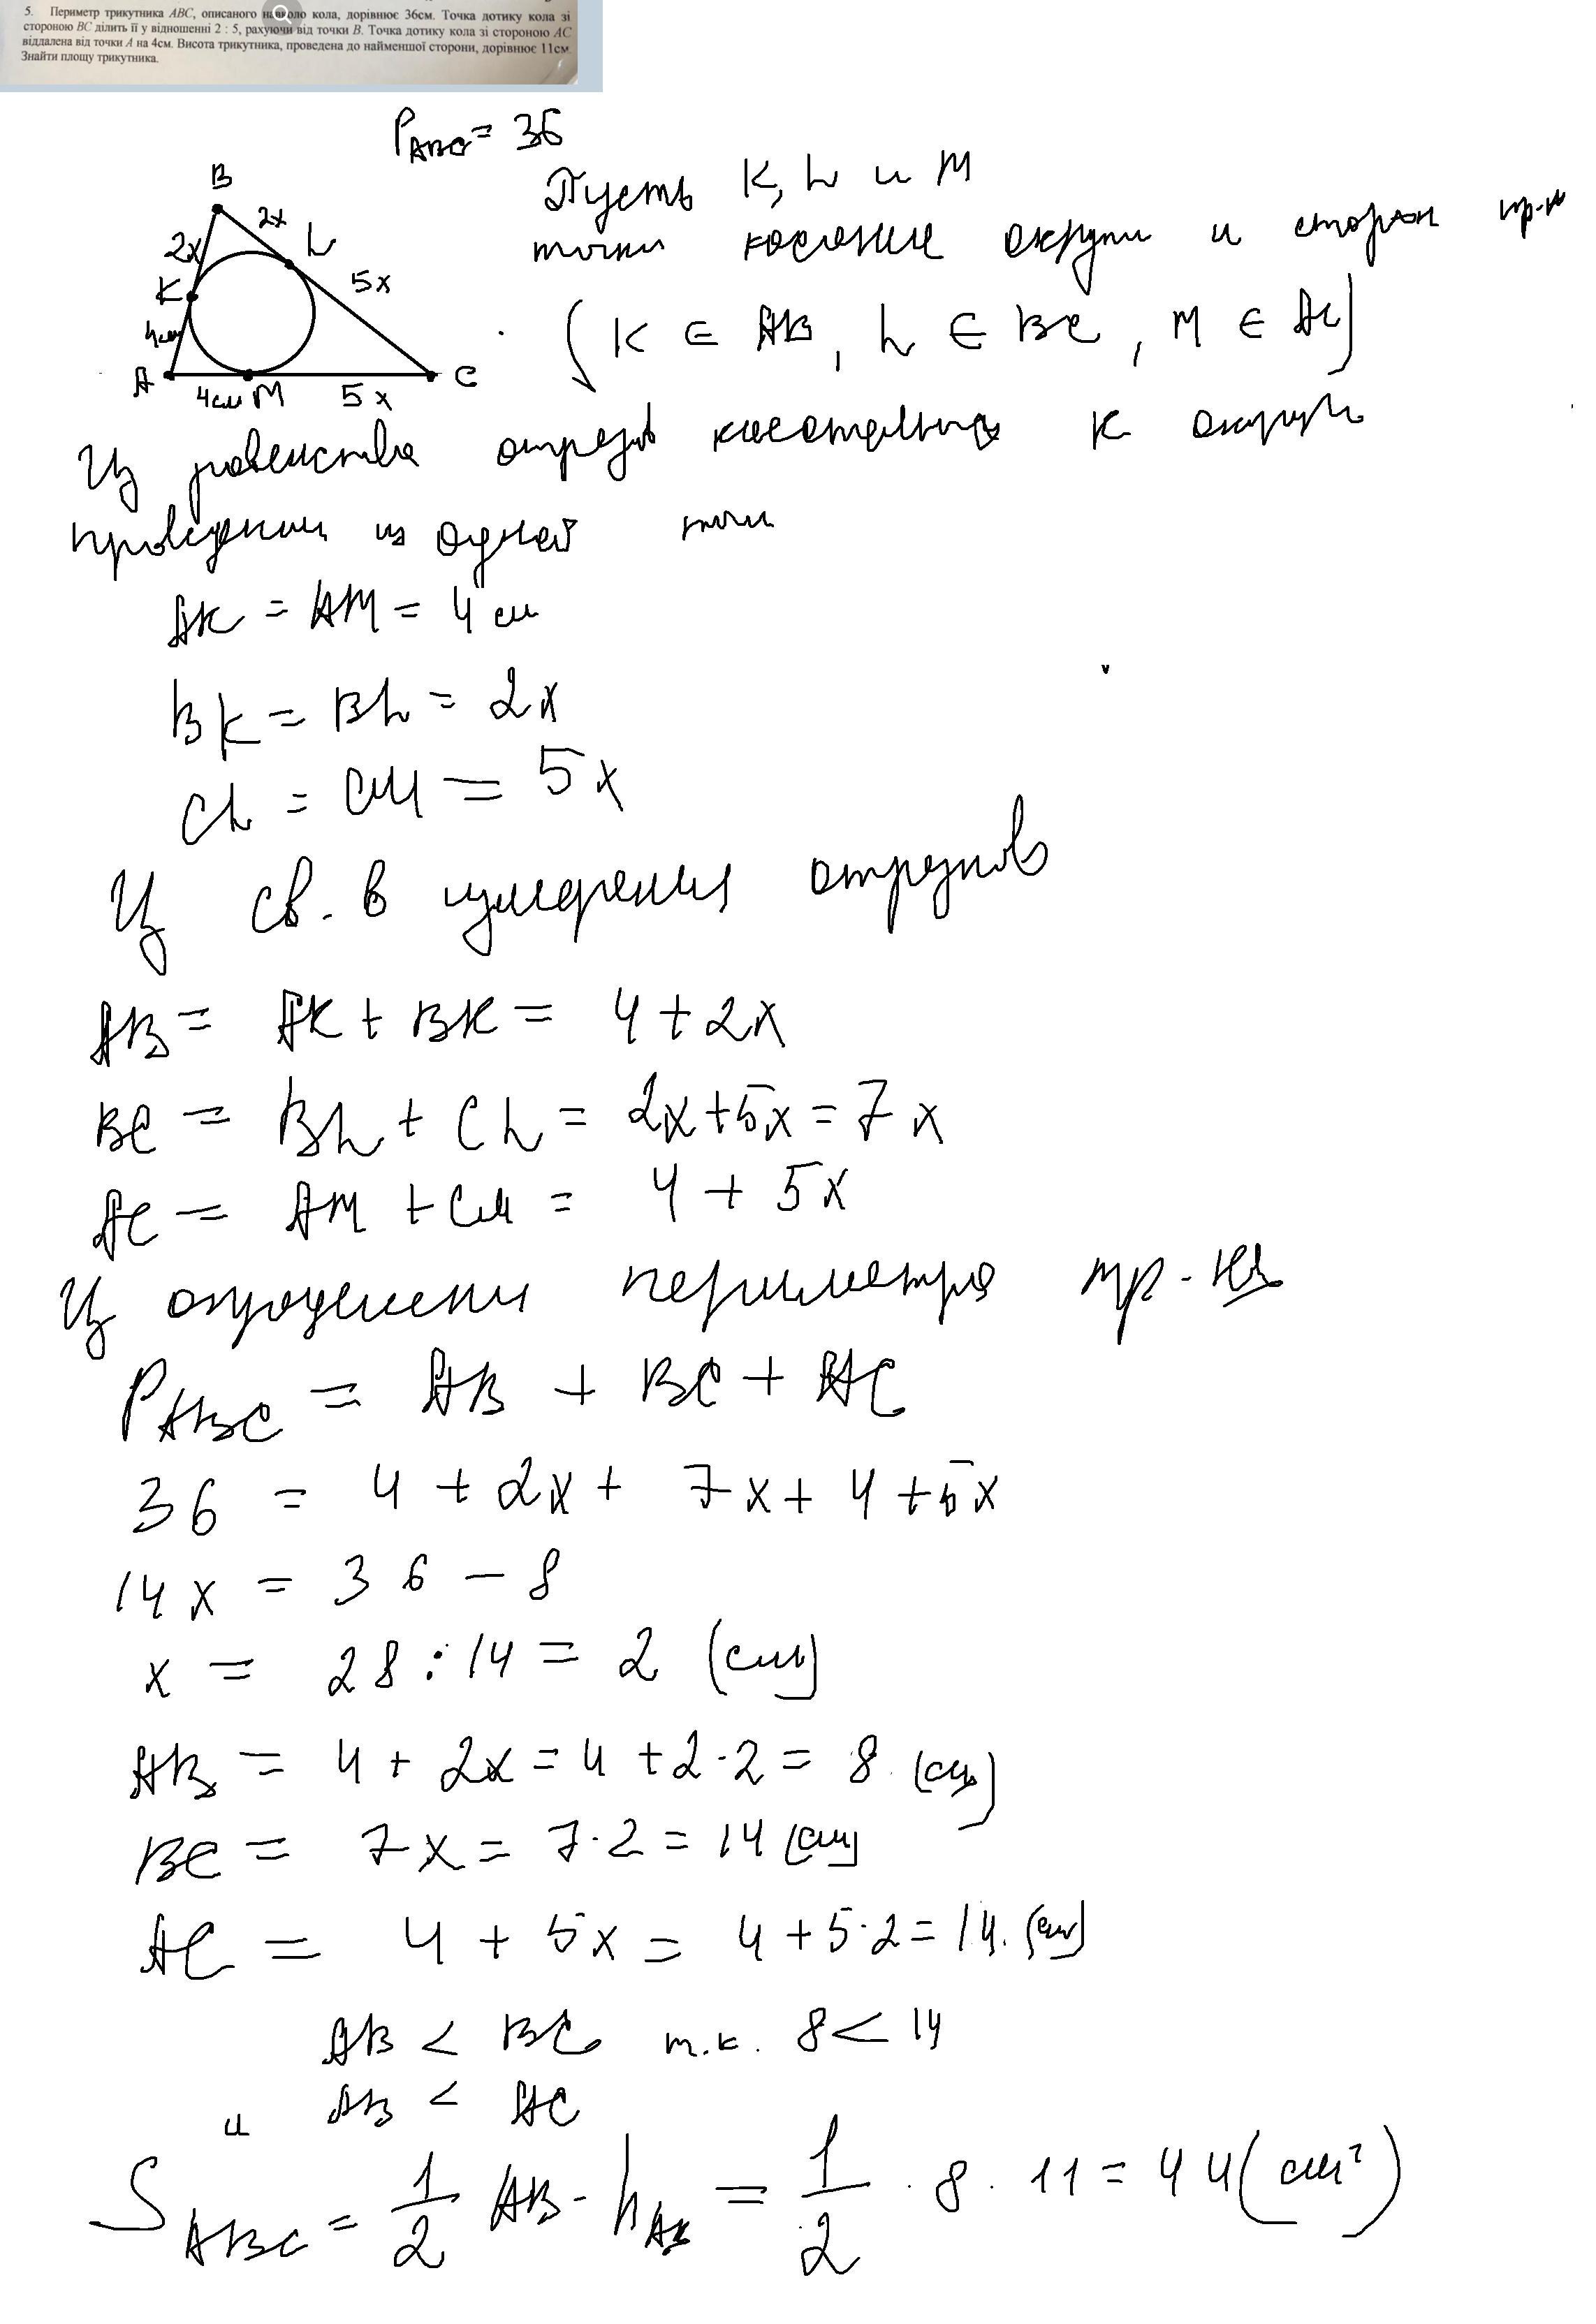 5. Периметр трикутника ABC, описаного навколо кола, дорівнює 36см. Точка дотику кола зі
стороною BC ділить її у відношенні 2 : 5, рахуючи від точки B. Точка дотику кола зі стороною AC
віддалена від точки A на 4см. Висота трикутника, проведена до найменшої сторони, дорівнює 11см.
Знайти площу трикутника.
P_ABC = 36
B
2x
2x
L
K
5x
4см
A
C
4см M 5x
Пусть K, L и M
точки касания окружн и сторон тр-к
(K ∈ AB, L ∈ BC, M ∈ AC)
Из равенства отрезков касательных к окружн
проведенных из одной точки
AK = AM = 4 см
BK = BL = 2x
CL = CM = 5x
Из св.в измерения отрезков
AB = AK + BK = 4 + 2x
BC = BL + CL = 2x + 5x = 7x
AC = AM + CM = 4 + 5x
Из определения периметра тр-ка
P_ABC = AB + BC + AC
36 = 4 + 2x + 7x + 4 + 5x
14x = 36 - 8
x = 28 : 14 = 2 (см)
AB = 4 + 2x = 4 + 2·2 = 8 (см)
BC = 7x = 7·2 = 14 (см)
AC = 4 + 5x = 4 + 5·2 = 14. (см)
AB < BC т.к. 8 < 14
и AB < AC
S_ABC = 1/2 AB · h_AB = 1/2 · 8 · 11 = 44 (см²)